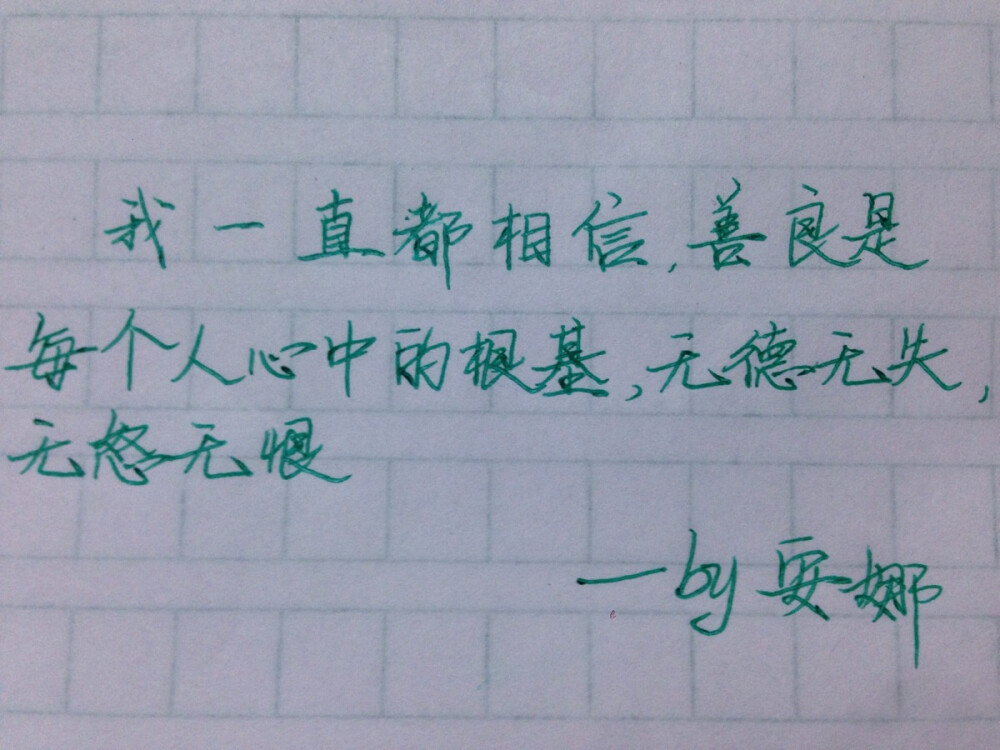 我一直都相信,善良是
每个人心中的根基,无德无失,
无怒无恨
—by安娜